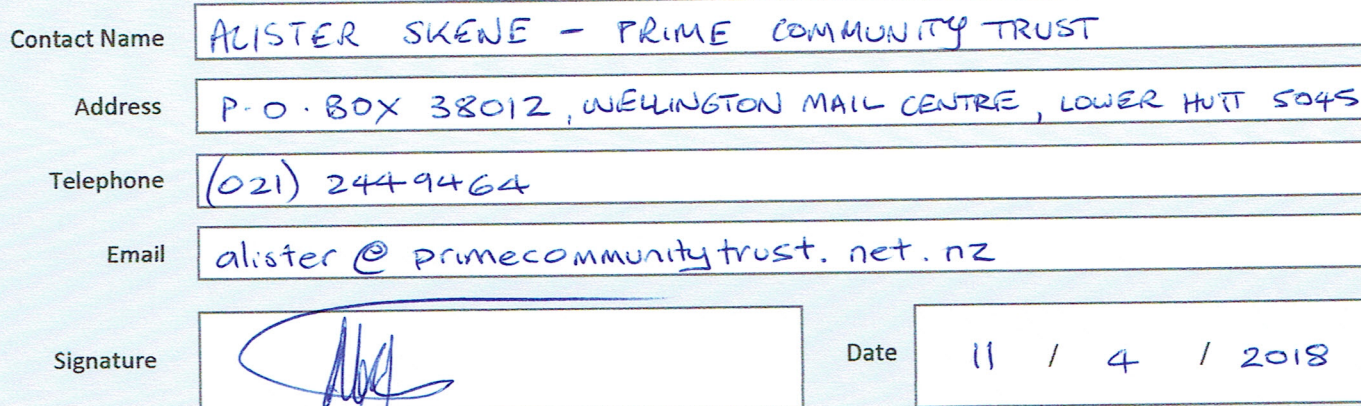 Contact Name ALISTER SKENE - PRIME COMMUNITY TRUST
Address P.O. BOX 38012, WELLINGTON MAIL CENTRE, LOWER HUTT 5045
Telephone (021) 2449464
Email alister@primecommunitytrust.net.nz
Signature Date 11 / 4 / 2018